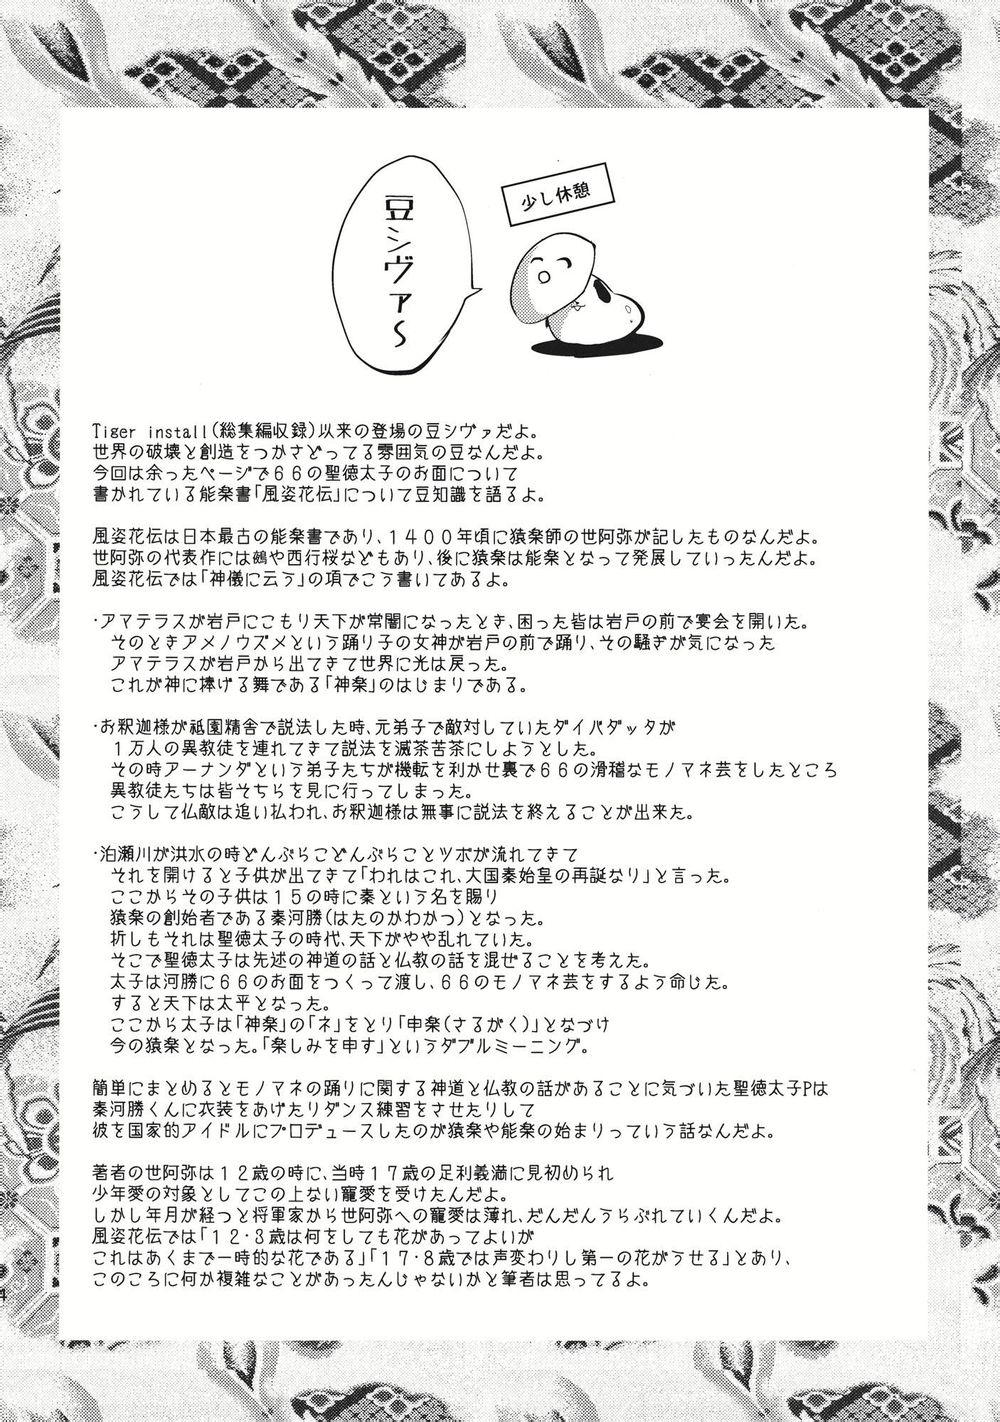 少し休憩
豆シヴァ～
Tiger install(総集編収録)以来の登場の豆シヴァだよ。
世界の破壊と創造をつかさどってる雰囲気の豆なんだよ。
今回は余ったページで６６の聖徳太子のお面について
書かれている能楽書「風姿花伝」について豆知識を語るよ。
風姿花伝は日本最古の能楽書であり、１４００年頃に猿楽師の世阿弥が記したものなんだよ。
世阿弥の代表作には鵺や西行桜などもあり、後に猿楽は能楽となって発展していったんだよ。
風姿花伝では「神儀に云う」の項でこう書いてあるよ。
・アマテラスが岩戸にこもり天下が常闇になったとき、困った皆は岩戸の前で宴会を開いた。
そのときアメノウズメという踊り子の女神が岩戸の前で踊り、その騒ぎが気になった
アマテラスが岩戸から出てきて世界に光は戻った。
これが神に捧げる舞である「神楽」のはじまりである。
・お釈迦様が祇園精舎で説法した時、元弟子で敵対していたダイバダッタが
１万人の異教徒を連れてきて説法を滅茶苦茶にしようとした。
その時アーナンダという弟子たちが機転を利かせ裏で６６の滑稽なモノマネ芸をしたところ
異教徒たちは皆そちらを見に行ってしまった。
こうして仏敵は追い払われ、お釈迦様は無事に説法を終えることが出来た。
・泊瀬川が洪水の時どんぶらこどんぶらことツボが流れてきて
それを開けると子供が出てきて「われはこれ、大国秦始皇の再誕なり」と言った。
ここからその子供は１５の時に秦という名を賜り
猿楽の創始者である秦河勝(はたのかわかつ)となった。
折しもそれは聖徳太子の時代、天下がやや乱れていた。
そこで聖徳太子は先述の神道の話と仏教の話を混ぜることを考えた。
太子は河勝に６６のお面をつくって渡し、６６のモノマネ芸をするよう命じた。
すると天下は太平となった。
ここから太子は「神楽」の「ネ」をとり「申楽(さるがく)」となづけ
今の猿楽となった。「楽しみを申す」というダブルミーニング。
簡単にまとめるとモノマネの踊りに関する神道と仏教の話があることに気づいた聖徳太子Pは
秦河勝くんに衣装をあげたりダンス練習をさせたりして
彼を国家的アイドルにプロデュースしたのが猿楽や能楽の始まりっていう話なんだよ。
著者の世阿弥は１２歳の時に、当時１７歳の足利義満に見初められ
少年愛の対象としてこの上ない寵愛を受けたんだよ。
しかし年月が経つと将軍家から世阿弥への寵愛は薄れ、だんだんうらぶれていくんだよ。
風姿花伝では「１２・３歳は何をしても花があってよいが
これはあくまで一時的な花である」「１７・８歳では声変わりし第一の花がうせる」とあり、
このころに何か複雑なことがあったんじゃないかと筆者は思ってるよ。
4